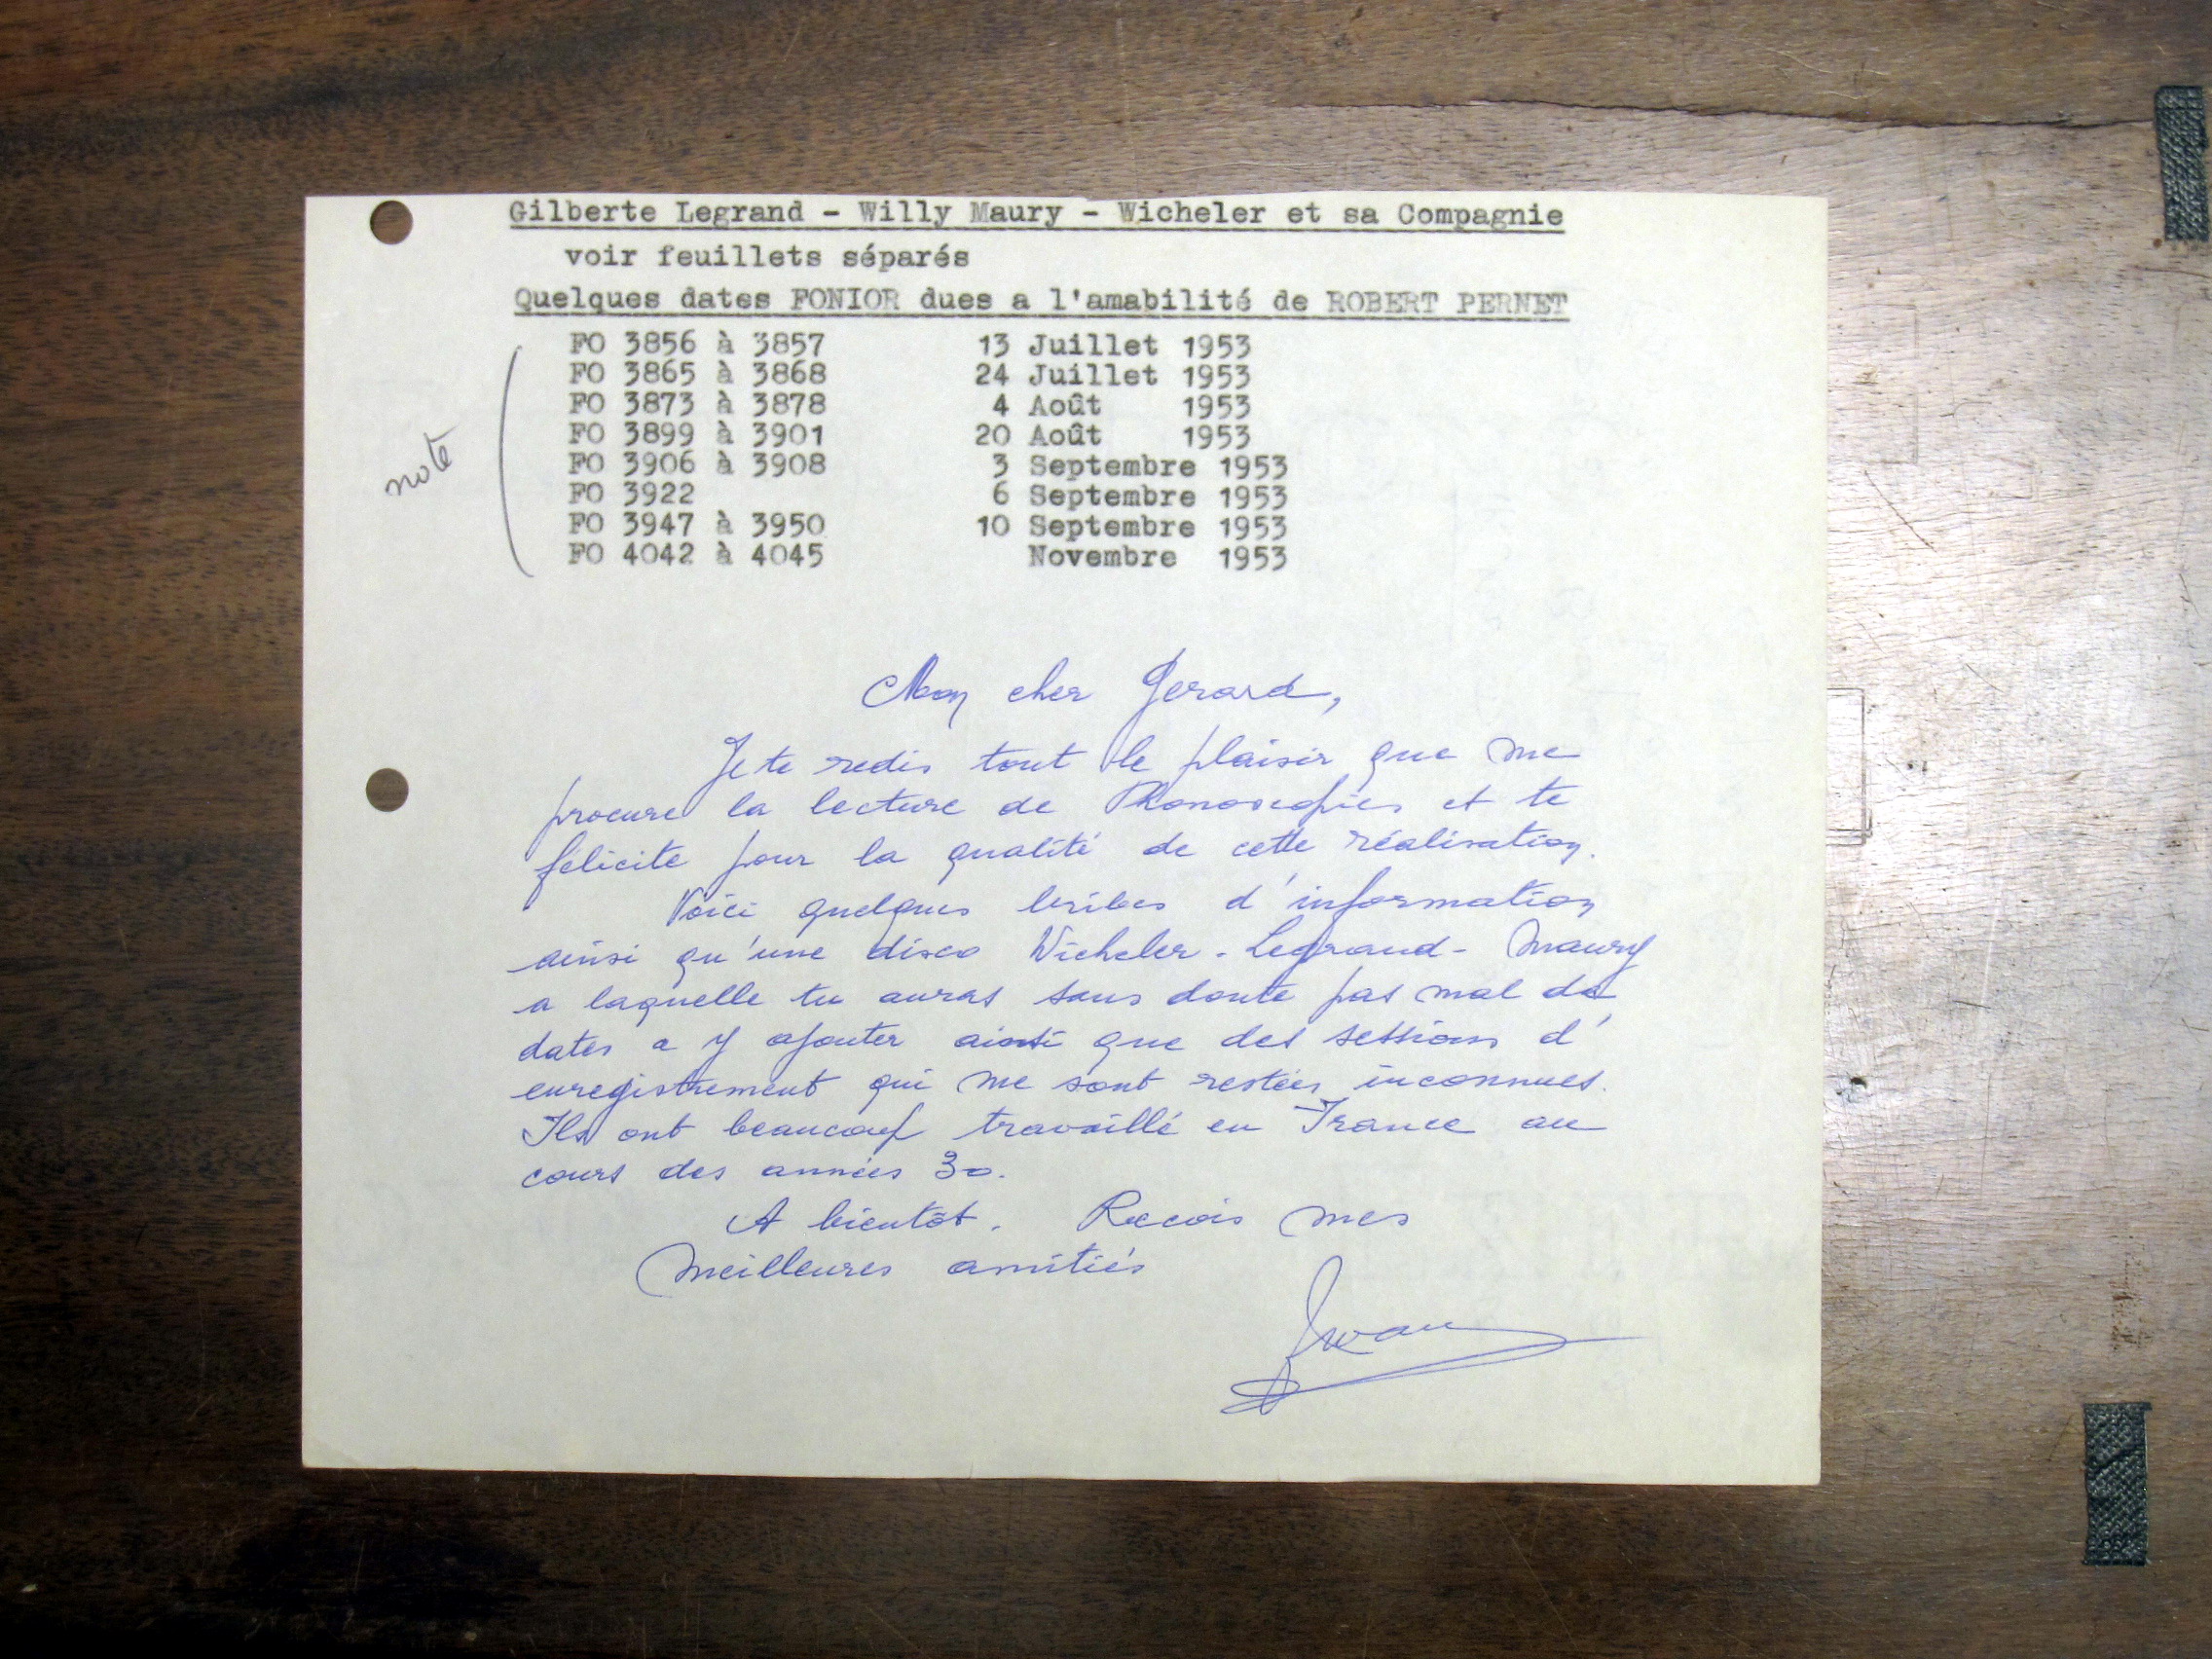 Gilberte Legrand - Willy Maury - Wicheler et sa Compagnie
voir feuillets séparés
Quelques dates FONIOR dues a l'amabilité de ROBERT PERNET
FO 3856 à 3857 13 Juillet 1953
FO 3865 à 3868 24 Juillet 1953
FO 3873 à 3878 4 Août 1953
FO 3899 à 3901 20 Août 1953
note
FO 3906 à 3908 3 Septembre 1953
FO 3922 6 Septembre 1953
FO 3947 à 3950 10 Septembre 1953
FO 4042 à 4045 Novembre 1953
Mon cher Gerard,
Je te redis tout le plaisir que me
procure la lecture de Phonoscopies et te
félicite pour la qualité de cette réalisation.
Voici quelques bribes d'information
ainsi qu'une disco Wicheler - Legrand - Maury
a laquelle tu auras sans doute pas mal de
dates a y ajouter ainsi que des sessions d'
enregistrement qui me sont restées inconnues.
Ils ont beaucoup travaillé en France au
cours des années 30.
A bientôt. Recois mes
meilleures amitiés